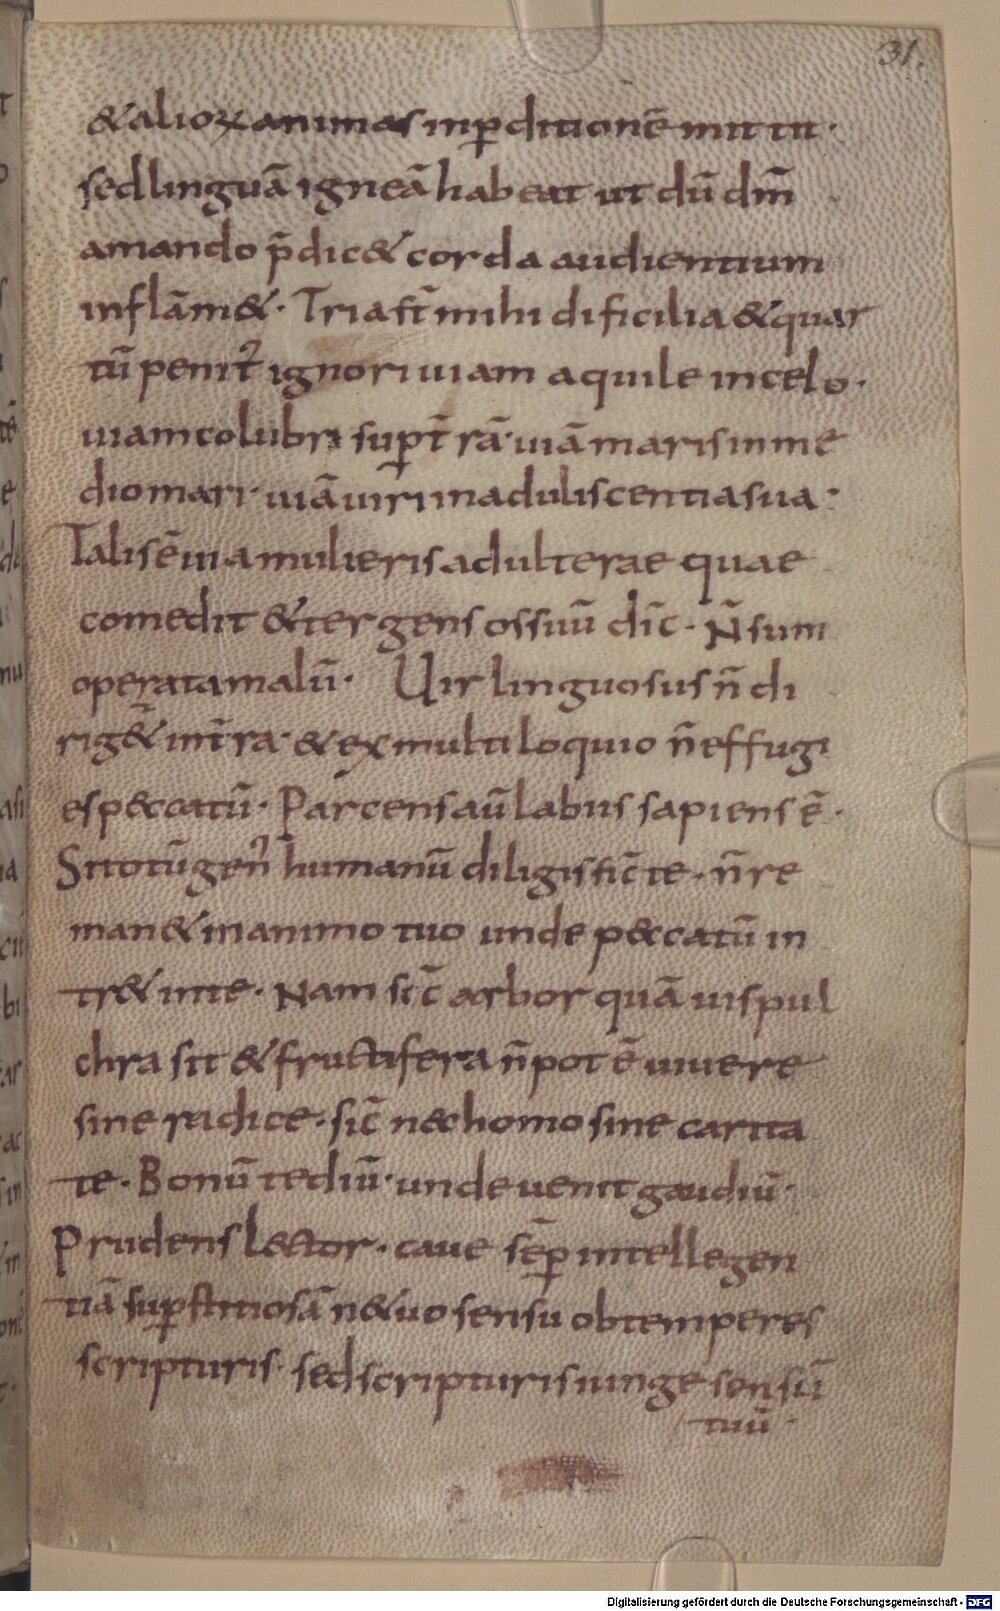 31.
&alioꝝ animas inꝑditionē mittit·
sed linguā igneā habeat ut dū dn̄m
amando p̄dic& corda audientium
inflām&· Tria st̄ mihi dificilia & quar
tū penit᷒ ignori uiam aquile in celo·
uiam colubri suꝑ t̄rā· uiā maris in me
dio mari· uiā uiri in aduliscentia sua·
Talis ē uia mulieris adulterae quae
comedit & tergens os suū dic̄· N̄ sum
operata malū· Uir linguosus n̄ di
rig& int̄ra· & ex multiloquio n̄ effugi
es p&catū· Parcens aū labiis sapiens ē·
Si totū gen᷒ humanū diligis sic̄ te· n̄ re
man& in animo tuo unde p&catū in
tr& in te· Nam sic̄ arbor quā uis pul
chra sit & fructifera n̄ potē uiuere
sine radice· sic̄ nec homo sine carita
te· Bonū tediū· unde uenit gaudiū·
Prudens l&tor· caue sēꝑ intellegen
tiā suꝑstitiosā n& uo sensu obtemperes
scripturis· sed scripturis iunge sensū
tuū·
Digitalisierung gefördert durch die Deutsche Forschungsgemeinschaft - DFG